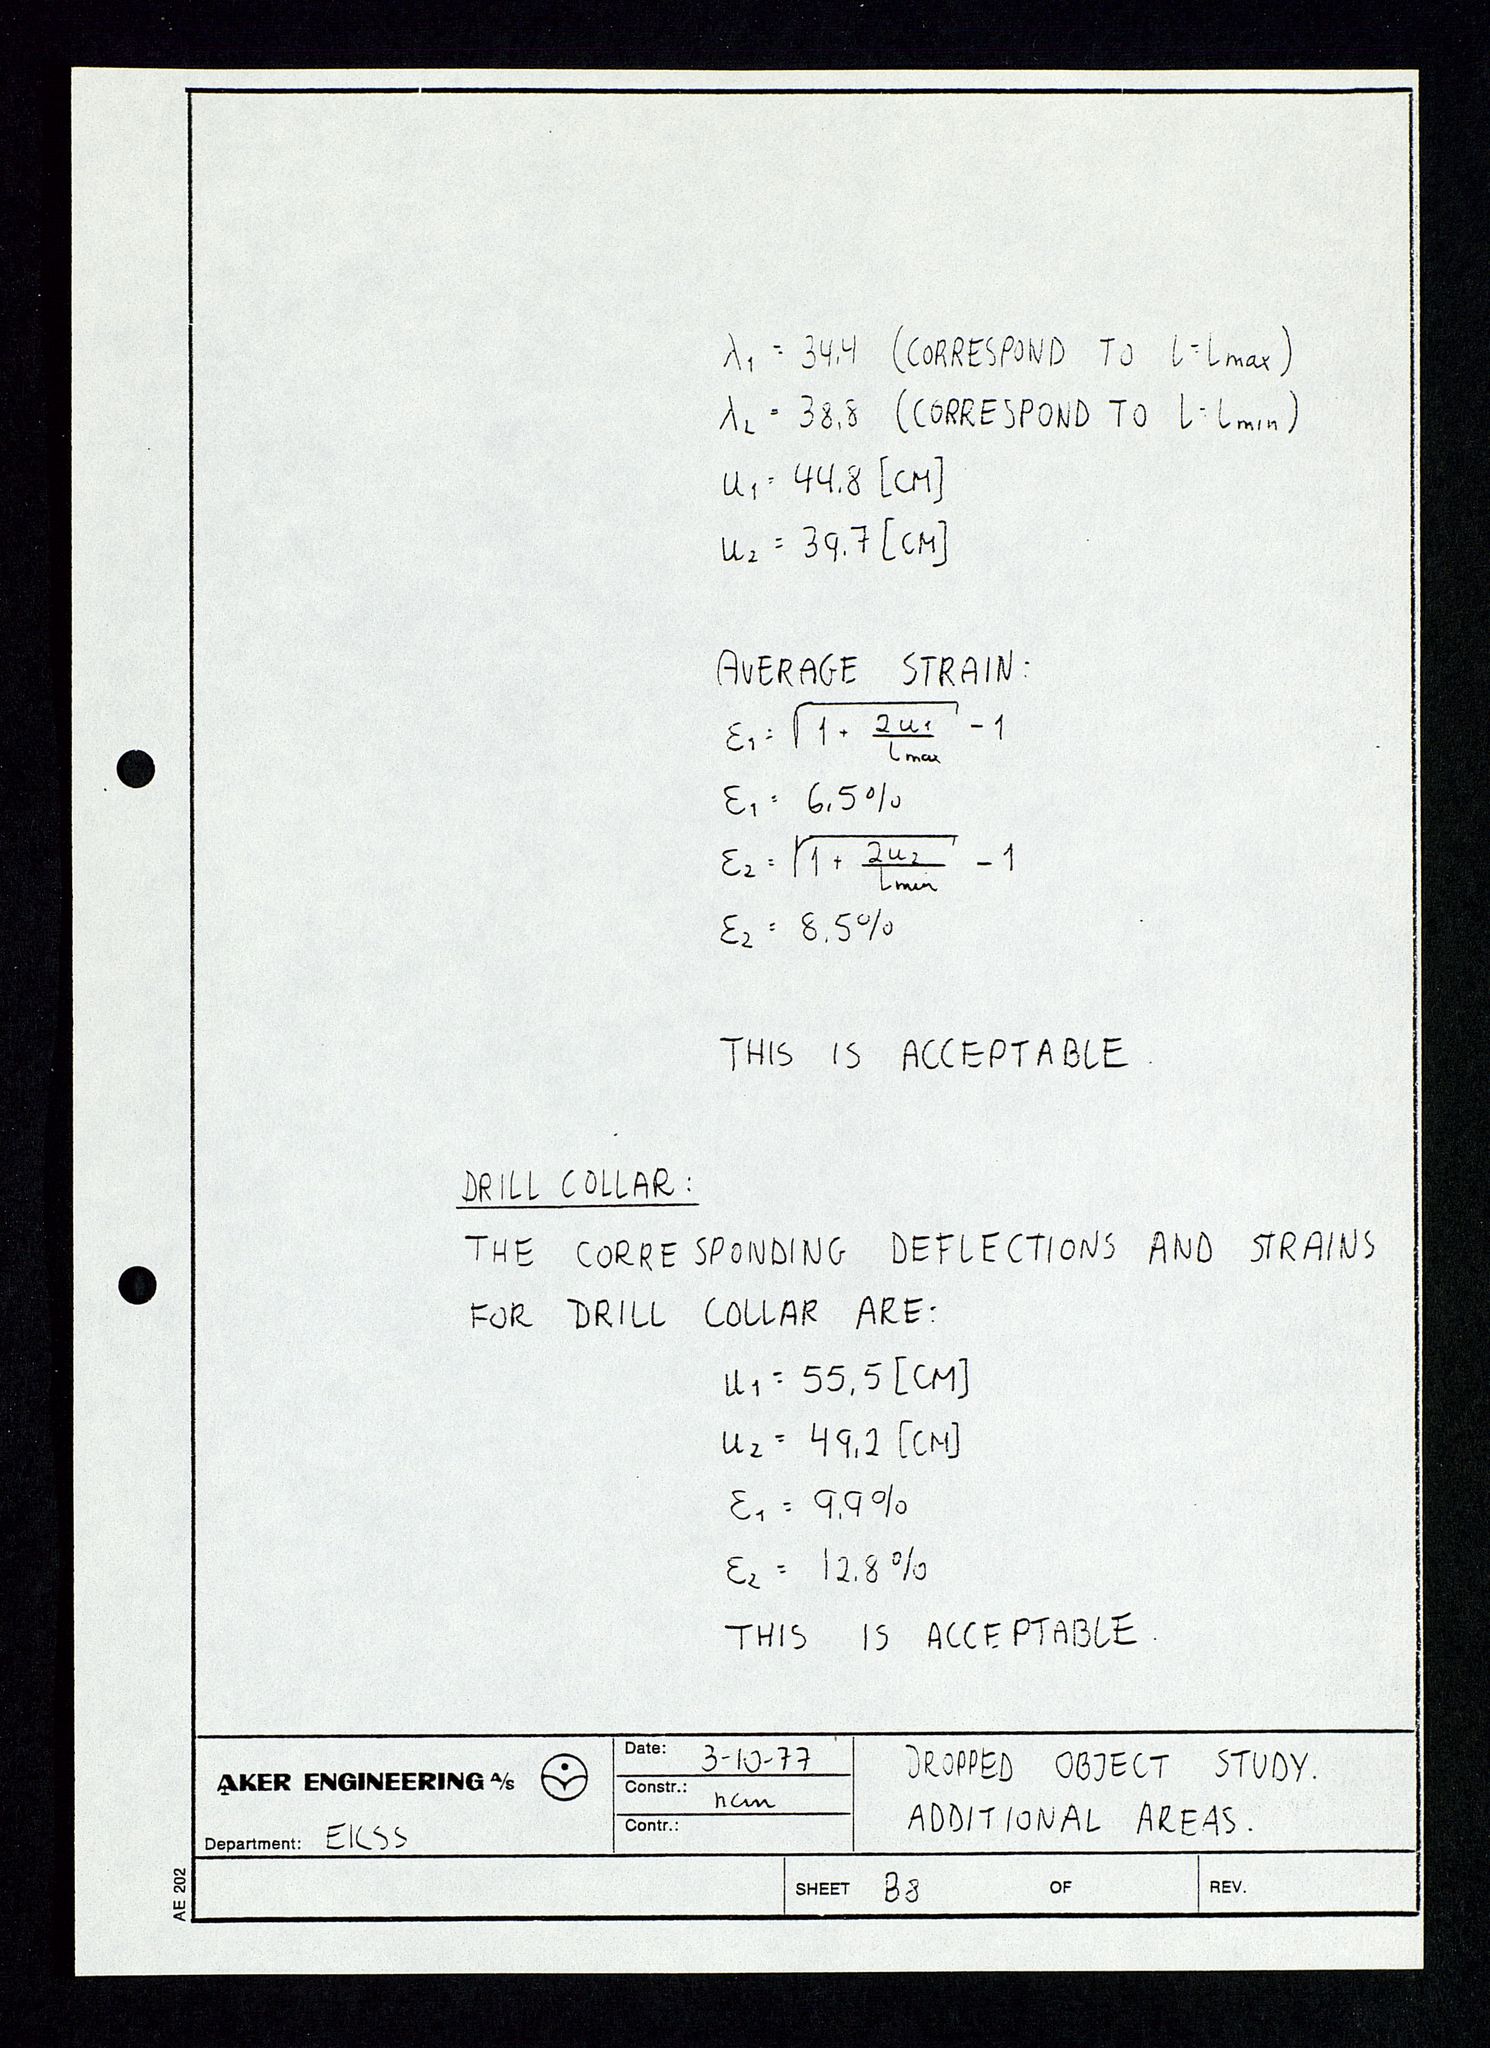 λ₁ = 34.4 (CORRESPOND TO l=lmax)
λ₂ = 38,8 (CORRESPOND TO l=lmin)
u₁ = 44.8 [CM]
u₂ = 39.7 [CM]
AVERAGE STRAIN:
ε₁ = √(1 + 2u₁/lmax) - 1
ε₁ = 6.5%
ε₂ = √(1 + 2u₂/lmin) - 1
ε₂ = 8.5%
THIS IS ACCEPTABLE.
DRILL COLLAR:
THE CORRESPONDING DEFLECTIONS AND STRAINS
FOR DRILL COLLAR ARE:
u₁ = 55,5 [CM]
u₂ = 49,2 [CM]
ε₁ = 9.9%
ε₂ = 12.8%
THIS IS ACCEPTABLE.
AKER ENGINEERING A/S
Department: EKSS
Date: 3-10-77
Constr.: hcm
Contr.:
DROPPED OBJECT STUDY.
ADDITIONAL AREAS.
SHEET B8 OF
REV.
AE 202